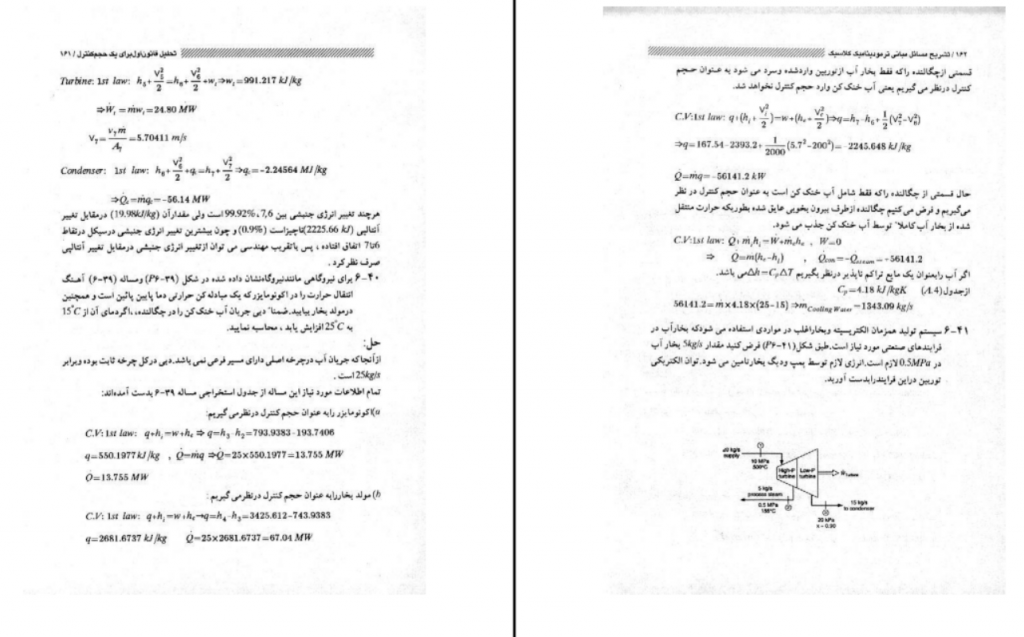 تحلیل قانون اول برای یک حجم کنترل / ۱۶۱
Turbine: 1st law: h₅+V₅²/2=h₆+V₆²/2+wₜ⇒wₜ=991.217 kJ/kg
⇒Ẇₜ=ṁwₜ=24.80 MW
V₇=v₇ṁ/A₇=5.70411 m/s
Condenser: 1st law: h₆+V₆²/2+q꜀=h₇+V₇²/2⇒q꜀=-2.24564 MJ/kg
⇒Q̇꜀=ṁq꜀=-56.14 MW
هرچند تغییر انرژی جنبشی بین 7,6، 99.92% است ولی مقدار آن (19.98kJ/kg) درمقابل تغییر
آنتالپی (2225.66 kJ) ناچیزاست (0.9%) و چون بیشترین تغییر انرژی جنبشی درسیکل درنقاط
6تا7 اتفاق افتاده ، پس باتقریب مهندسی می توان ازتغییر انرژی جنبشی درمقابل تغییر آنتالپی
صرف نظر کرد .
۶-۴۰ برای نیروگاهی مانندنیروگاه نشان داده شده در شکل (P۶-۳۹) ومساله (۶-۳۹) آهنگ
انتقال حرارت را در اکونومایزر که یک مبادله کن حرارتی دما پایین پائین است و همچنین
درمولد بخار بیابید.ضمنا" دبی جریان آب خنک کن را در چگالنده، ،اگردمای آن از 15°C
به 25°C افزایش یابد ، محاسبه نمایید.
حل:
ازآنجاکه جریان آب درچرخه اصلی دارای مسیر فرعی نمی باشد.دبی درکل چرخه ثابت بوده وبرابر
25kg/s است .
تمام اطلاعات مورد نیاز این مساله از جدول استخراجی مساله ۶-۳۹ بدست آمده‌اند:
a)اکونومایزر رابه عنوان حجم کنترل درنظرمی گیریم:
C.V: 1st law: q+hᵢ=w+hₑ ⇒ q=h₃-h₂=793.9383-193.7406
q=550.1977 kJ/kg , Q̇=ṁq ⇒Q̇=25×550.1977=13.755 MW
Q̇=13.755 MW
b) مولد بخاررابه عنوان حجم کنترل درنظرمی گیریم :
C.V: 1st law: q+hᵢ=w+hₑ→q=h₄-h₃=3425.612-743.9383
q=2681.6737 kJ/kg Q̇=25×2681.6737=67.04 MW
۱۶۲ / تشریح مسائل مبانی ترمودینامیک کلاسیک
قسمتی ازچگالنده راکه فقط بخار آب ازتوربین واردشده وسرد می شود به عنوان حجم
کنترل درنظر می گیریم یعنی آب خنک کن وارد حجم کنترل نخواهد شد.
C.V:1st law: q+(hᵢ+Vᵢ²/2)=w+(hₑ+Vₑ²/2)⇒q=h₇-h₆+1/2(V₇²-V₆²)
⇒q=167.54-2393.2+1/2000(5.7²-200²)=-2245.648 kJ/kg
Q̇=ṁq=-56141.2 kW
حال قسمتی از چگالنده راکه فقط شامل آب خنک کن است به عنوان حجم کنترل در نظر
می‌گیریم و فرض می کنیم چگالنده ازطرف بیرون بخوبی عایق شده بطوریکه حرارت منتقل
شده از بخار آب کاملا" توسط آب خنک کن جذب می شود.
C.V:1st law: Q̇+ṁᵢhᵢ=Ẇ+ṁₑhₑ , Ẇ=0
⇒ Q̇=ṁ(hₑ-hᵢ) , Q̇cm=-Q̇steam=-56141.2
اگر آب رابعنوان یک مایع تراکم ناپذیر درنظر بگیریم Δh=CₚΔT می باشد.
ازجدول(A.4) Cₚ=4.18 kJ/kgK
56141.2=ṁ×4.18(25-15)⇒ṁCooling Water=1343.09 kg/s
۶-۴۱ سیستم تولید همزمان الکتریسیته وبخاراغلب در مواردی استفاده می شودکه بخارآب در
فرایندهای صنعتی مورد نیاز است.طبق شکل(P۶-۴۱) فرض کنید مقدار 5kg/s بخار آب
در 0.5MPa لازم است.انرژی لازم توسط پمپ ودیگ بخارتامین می شود.توان الکتریکی
توربین دراین فرایندرابدست آورید.
20 kg/s
supply
10 MPa
500°C
High-P
turbine
Low-P
turbine
5 kg/s
process steam
0.5 MPa
155°C
15 kg/s
to condenser
20 kPa
x = 0.90